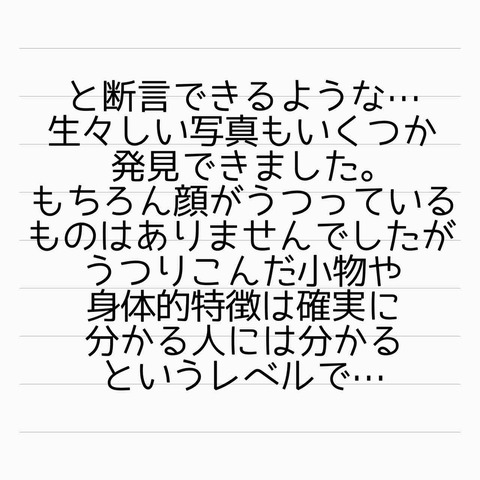 と断言できるような…
生々しい写真もいくつか
発見できました。
もちろん顔がうつっている
ものはありませんでしたが
うつりこんだ小物や
身体的特徴は確実に
分かる人には分かる
というレベルで…